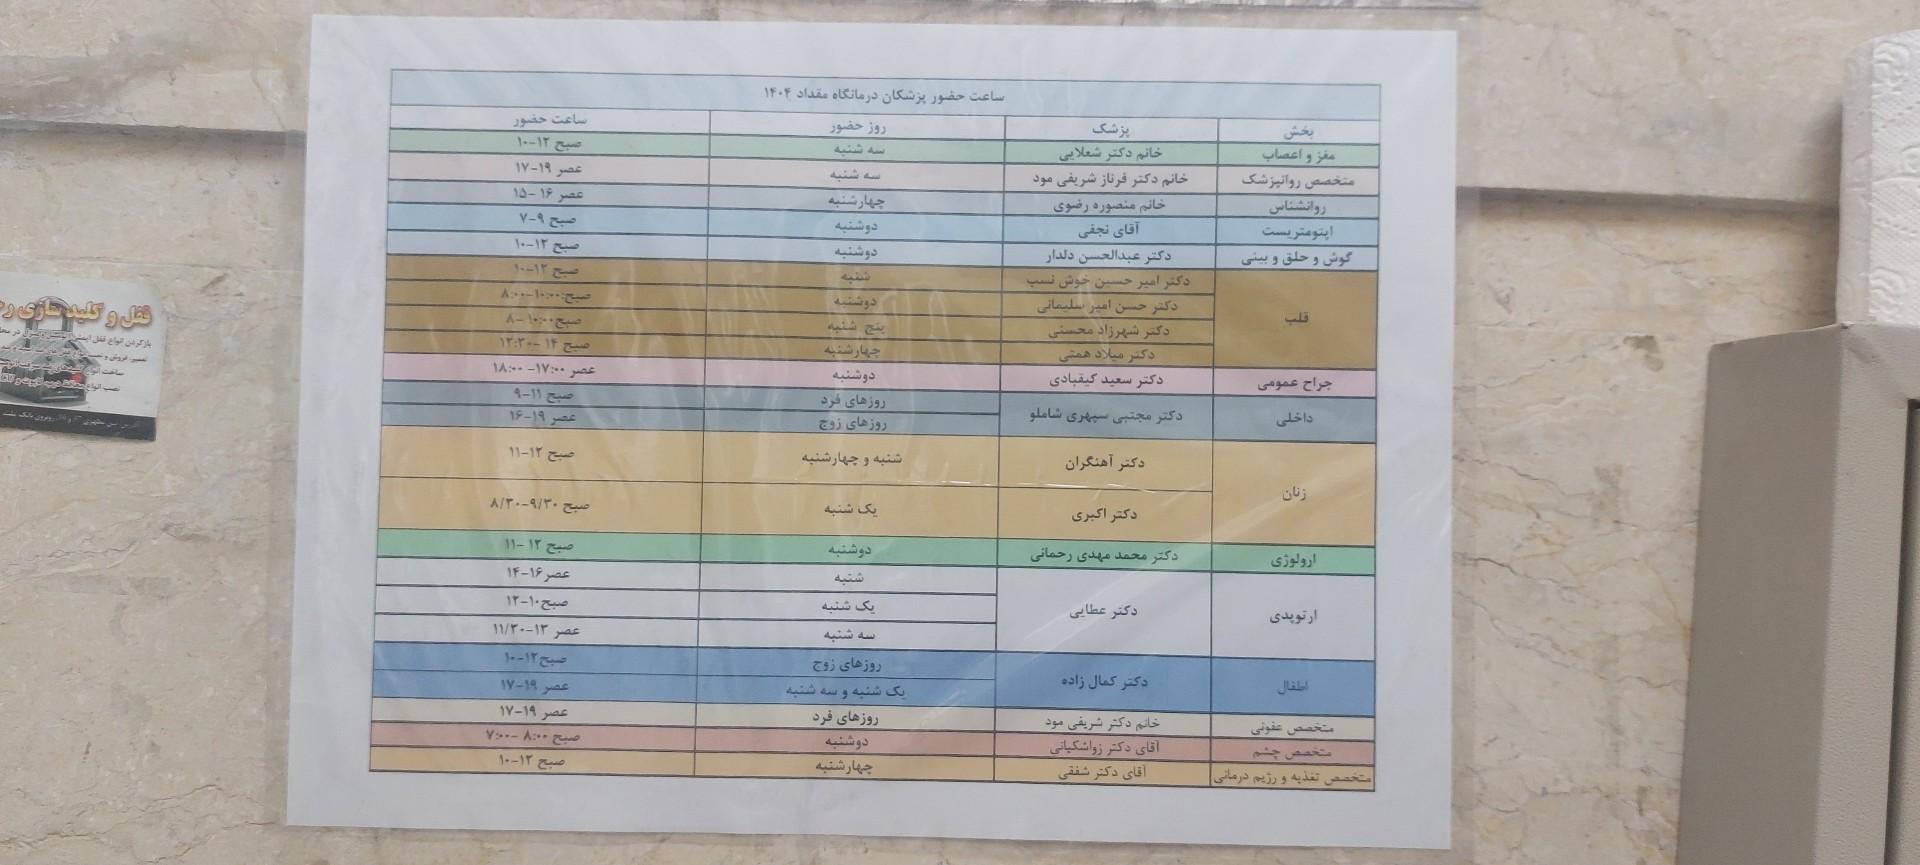 ساعت حضور پزشکان درمانگاه مقداد ۱۴۰۴
بخش پزشک روز حضور ساعت حضور
مغز و اعصاب خانم دکتر شعلایی سه شنبه صبح ۱۲-۱۰
متخصص روانپزشک خانم دکتر فرناز شریفی مود سه شنبه عصر ۱۹-۱۷
روانشناس خانم منصوره رضوی چهارشنبه عصر ۱۶ -۱۵
اپتومتریست آقای نجفی دوشنبه صبح ۹-۷
گوش و حلق و بینی دکتر عبدالحسن دلدار دوشنبه صبح ۱۲-۱۰
قلب دکتر امیر حسین خوش نسب شنبه صبح ۱۲-۱۰
دکتر حسن امیر سلیمانی دوشنبه صبح۱۰:۰۰-۸:۰۰
دکتر شهرزاد محسنی پنج شنبه صبح۱۰:۰۰-۸
دکتر میلاد همتی چهارشنبه صبح ۱۴ -۱۲:۳۰
جراح عمومی دکتر سعید کیقبادی دوشنبه عصر ۱۷:۰۰- ۱۸:۰۰
داخلی دکتر مجتبی سپهری شاملو روزهای فرد صبح ۱۱-۹
روزهای زوج عصر ۱۹-۱۶
زنان دکتر آهنگران شنبه و چهارشنبه صبح ۱۲-۱۱
دکتر اکبری یک شنبه صبح ۹/۳۰-۸/۳۰
ارولوژی دکتر محمد مهدی رحمانی دوشنبه صبح ۱۲ -۱۱
ارتوپدی دکتر عطایی شنبه عصر۱۶-۱۴
یک شنبه صبح۱۰-۱۲
سه شنبه عصر ۱۳-۱۱/۳۰
اطفال دکتر کمال زاده روزهای زوج صبح۱۲-۱۰
یک شنبه و سه شنبه عصر ۱۹-۱۷
متخصص عفونی خانم دکتر شریفی مود روزهای فرد عصر ۱۹-۱۷
متخصص چشم آقای دکتر زواشکیانی دوشنبه صبح ۸:۰۰ -۷:۰۰
متخصص تغذیه و رژیم درمانی آقای دکتر شفقی چهارشنبه صبح ۱۲-۱۰
قفل و کلید سازی